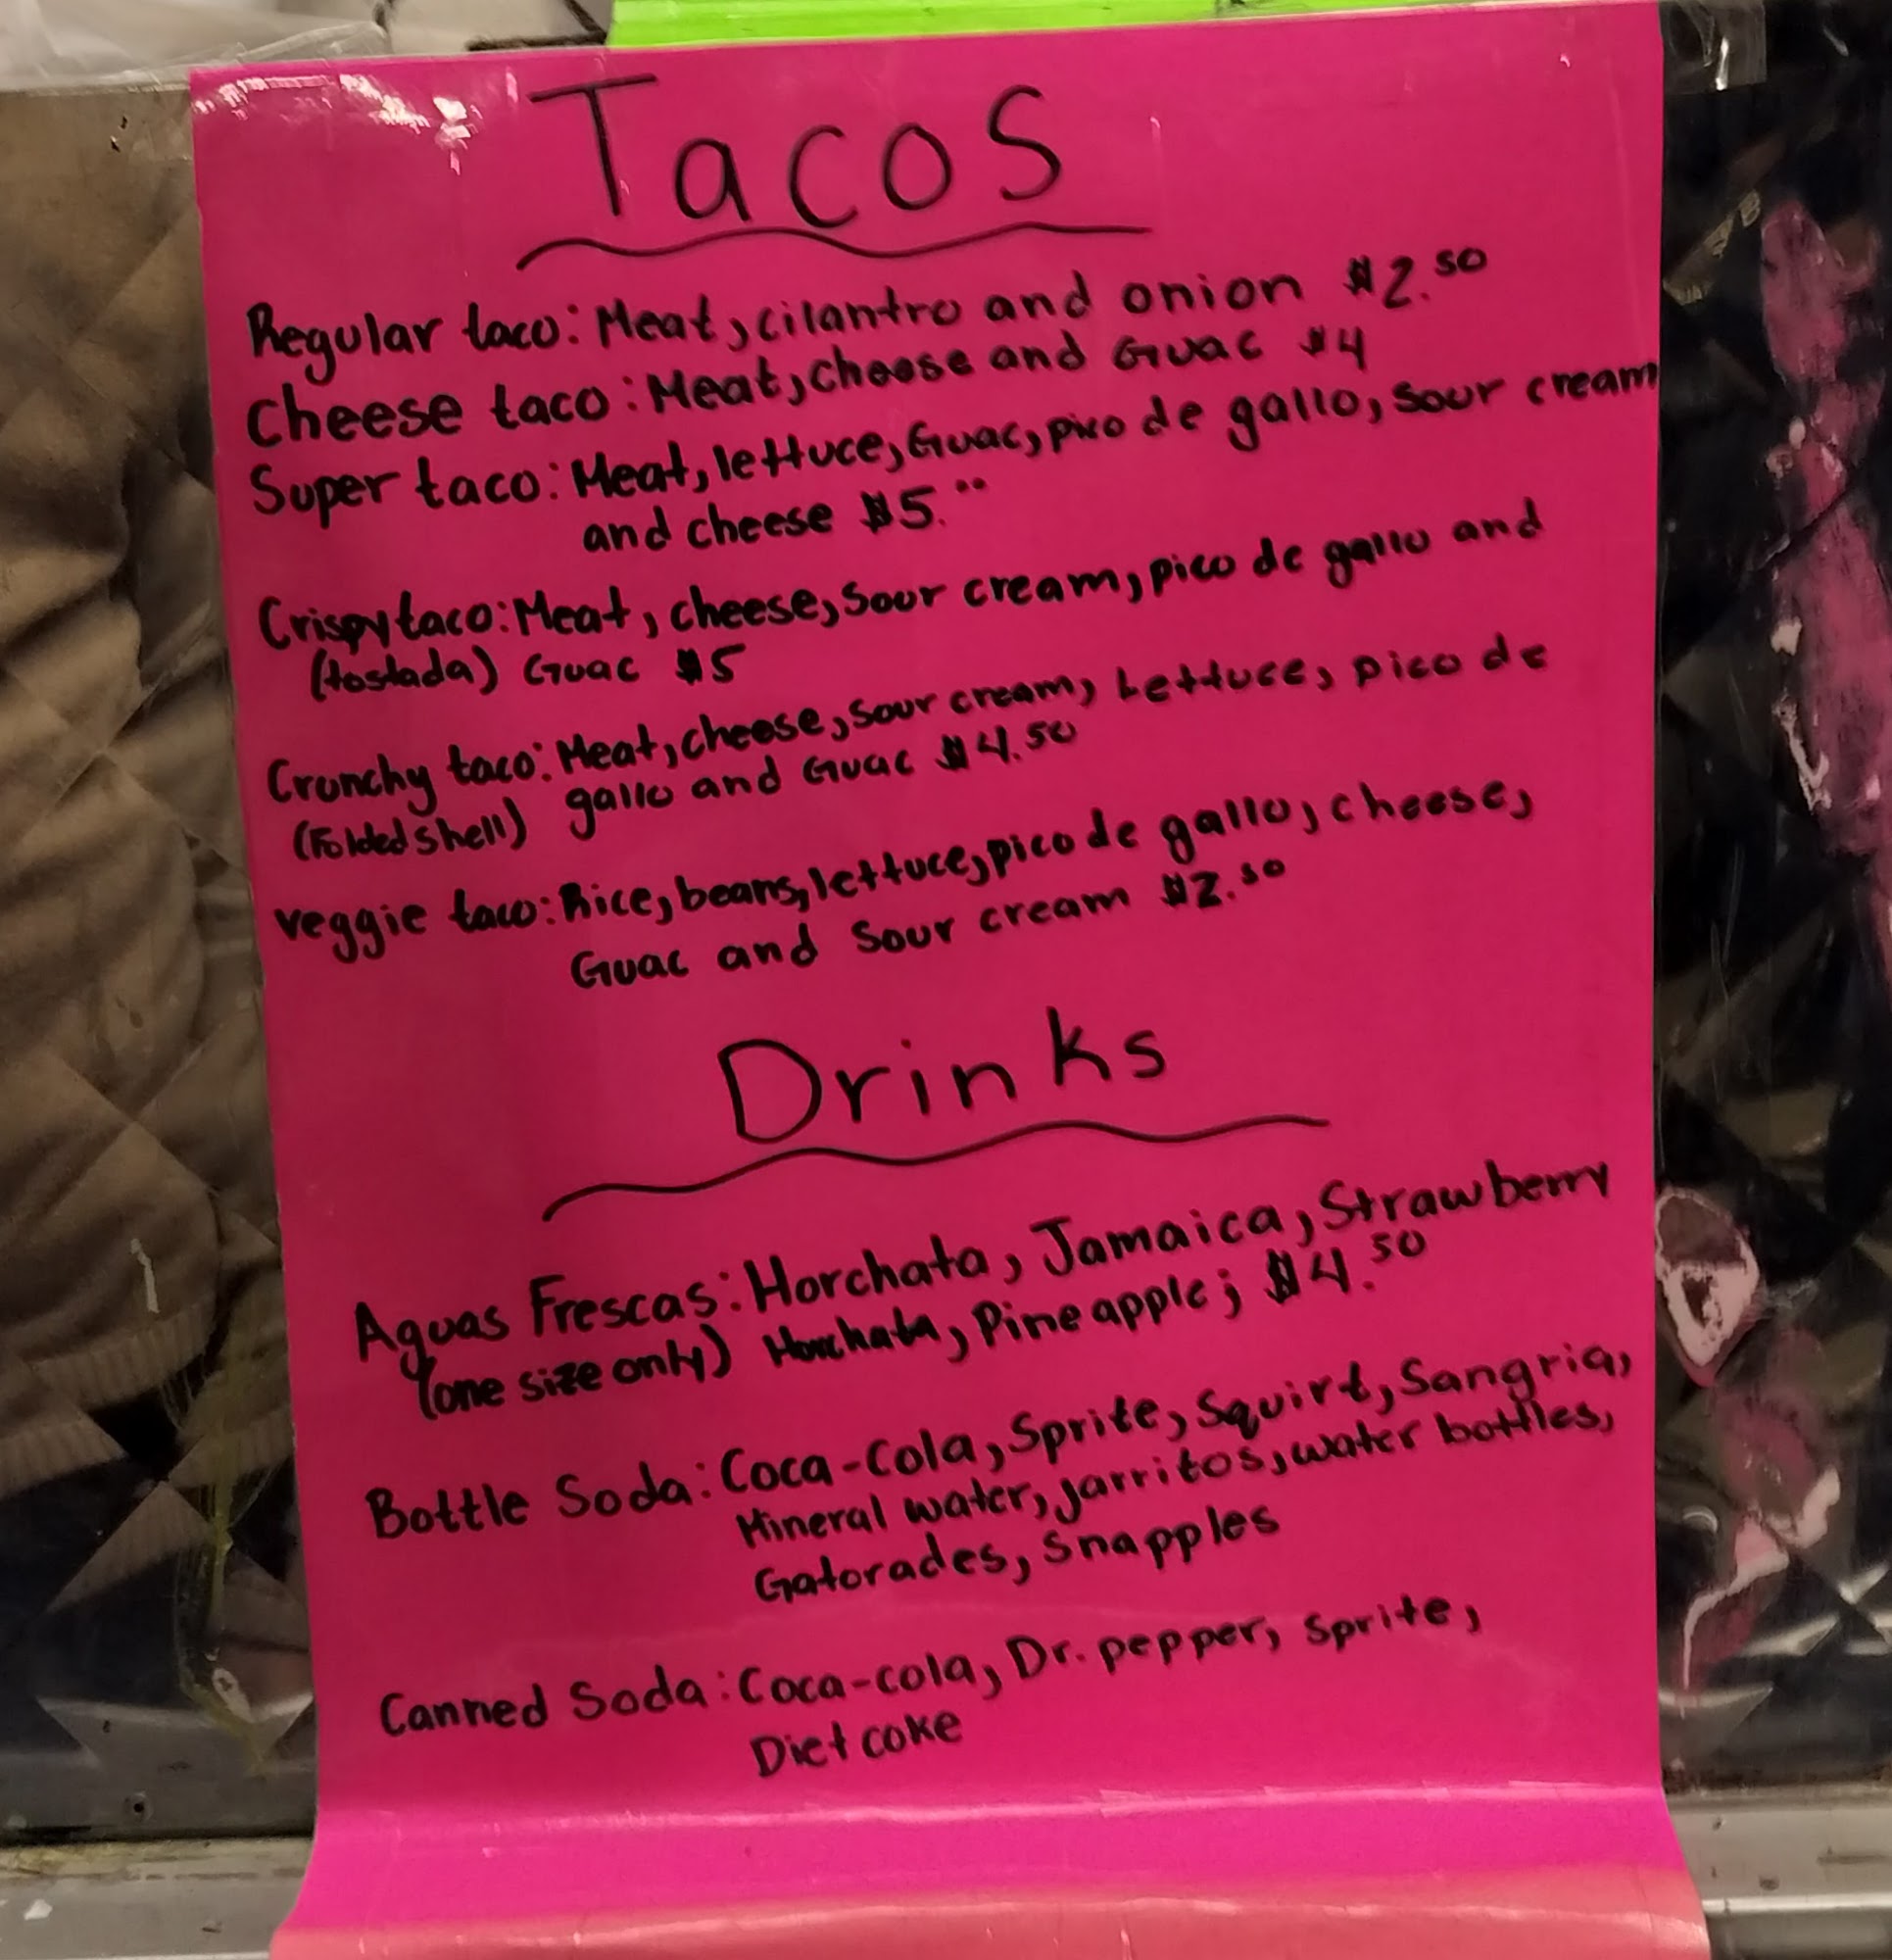 Tacos
Regular taco: Meat, cilantro and onion $2.50
Cheese taco: Meat, cheese and Guac $4
Super taco: Meat, lettuce, Guac, pico de gallo, sour cream
and cheese $5.
Crispy taco: Meat, cheese, sour cream, pico de gallo and
(tostada) Guac $5
Crunchy taco: Meat, cheese, sour cream, Lettuce, pico de
(Folded shell) gallo and Guac $4.50
veggie taco: Rice, beans, lettuce, pico de gallo, cheese,
Guac and Sour cream $2.50
Drinks
Aguas Frescas: Horchata, Jamaica, Strawberry
(one size only) Horchata, Pineapple; $4.50
Bottle Soda: Coca-Cola, Sprite, Squirt, Sangria,
Mineral water, jarritos, water bottles,
Gatorades, Snapples
Canned Soda: Coca-cola, Dr. pepper, Sprite,
Diet coke